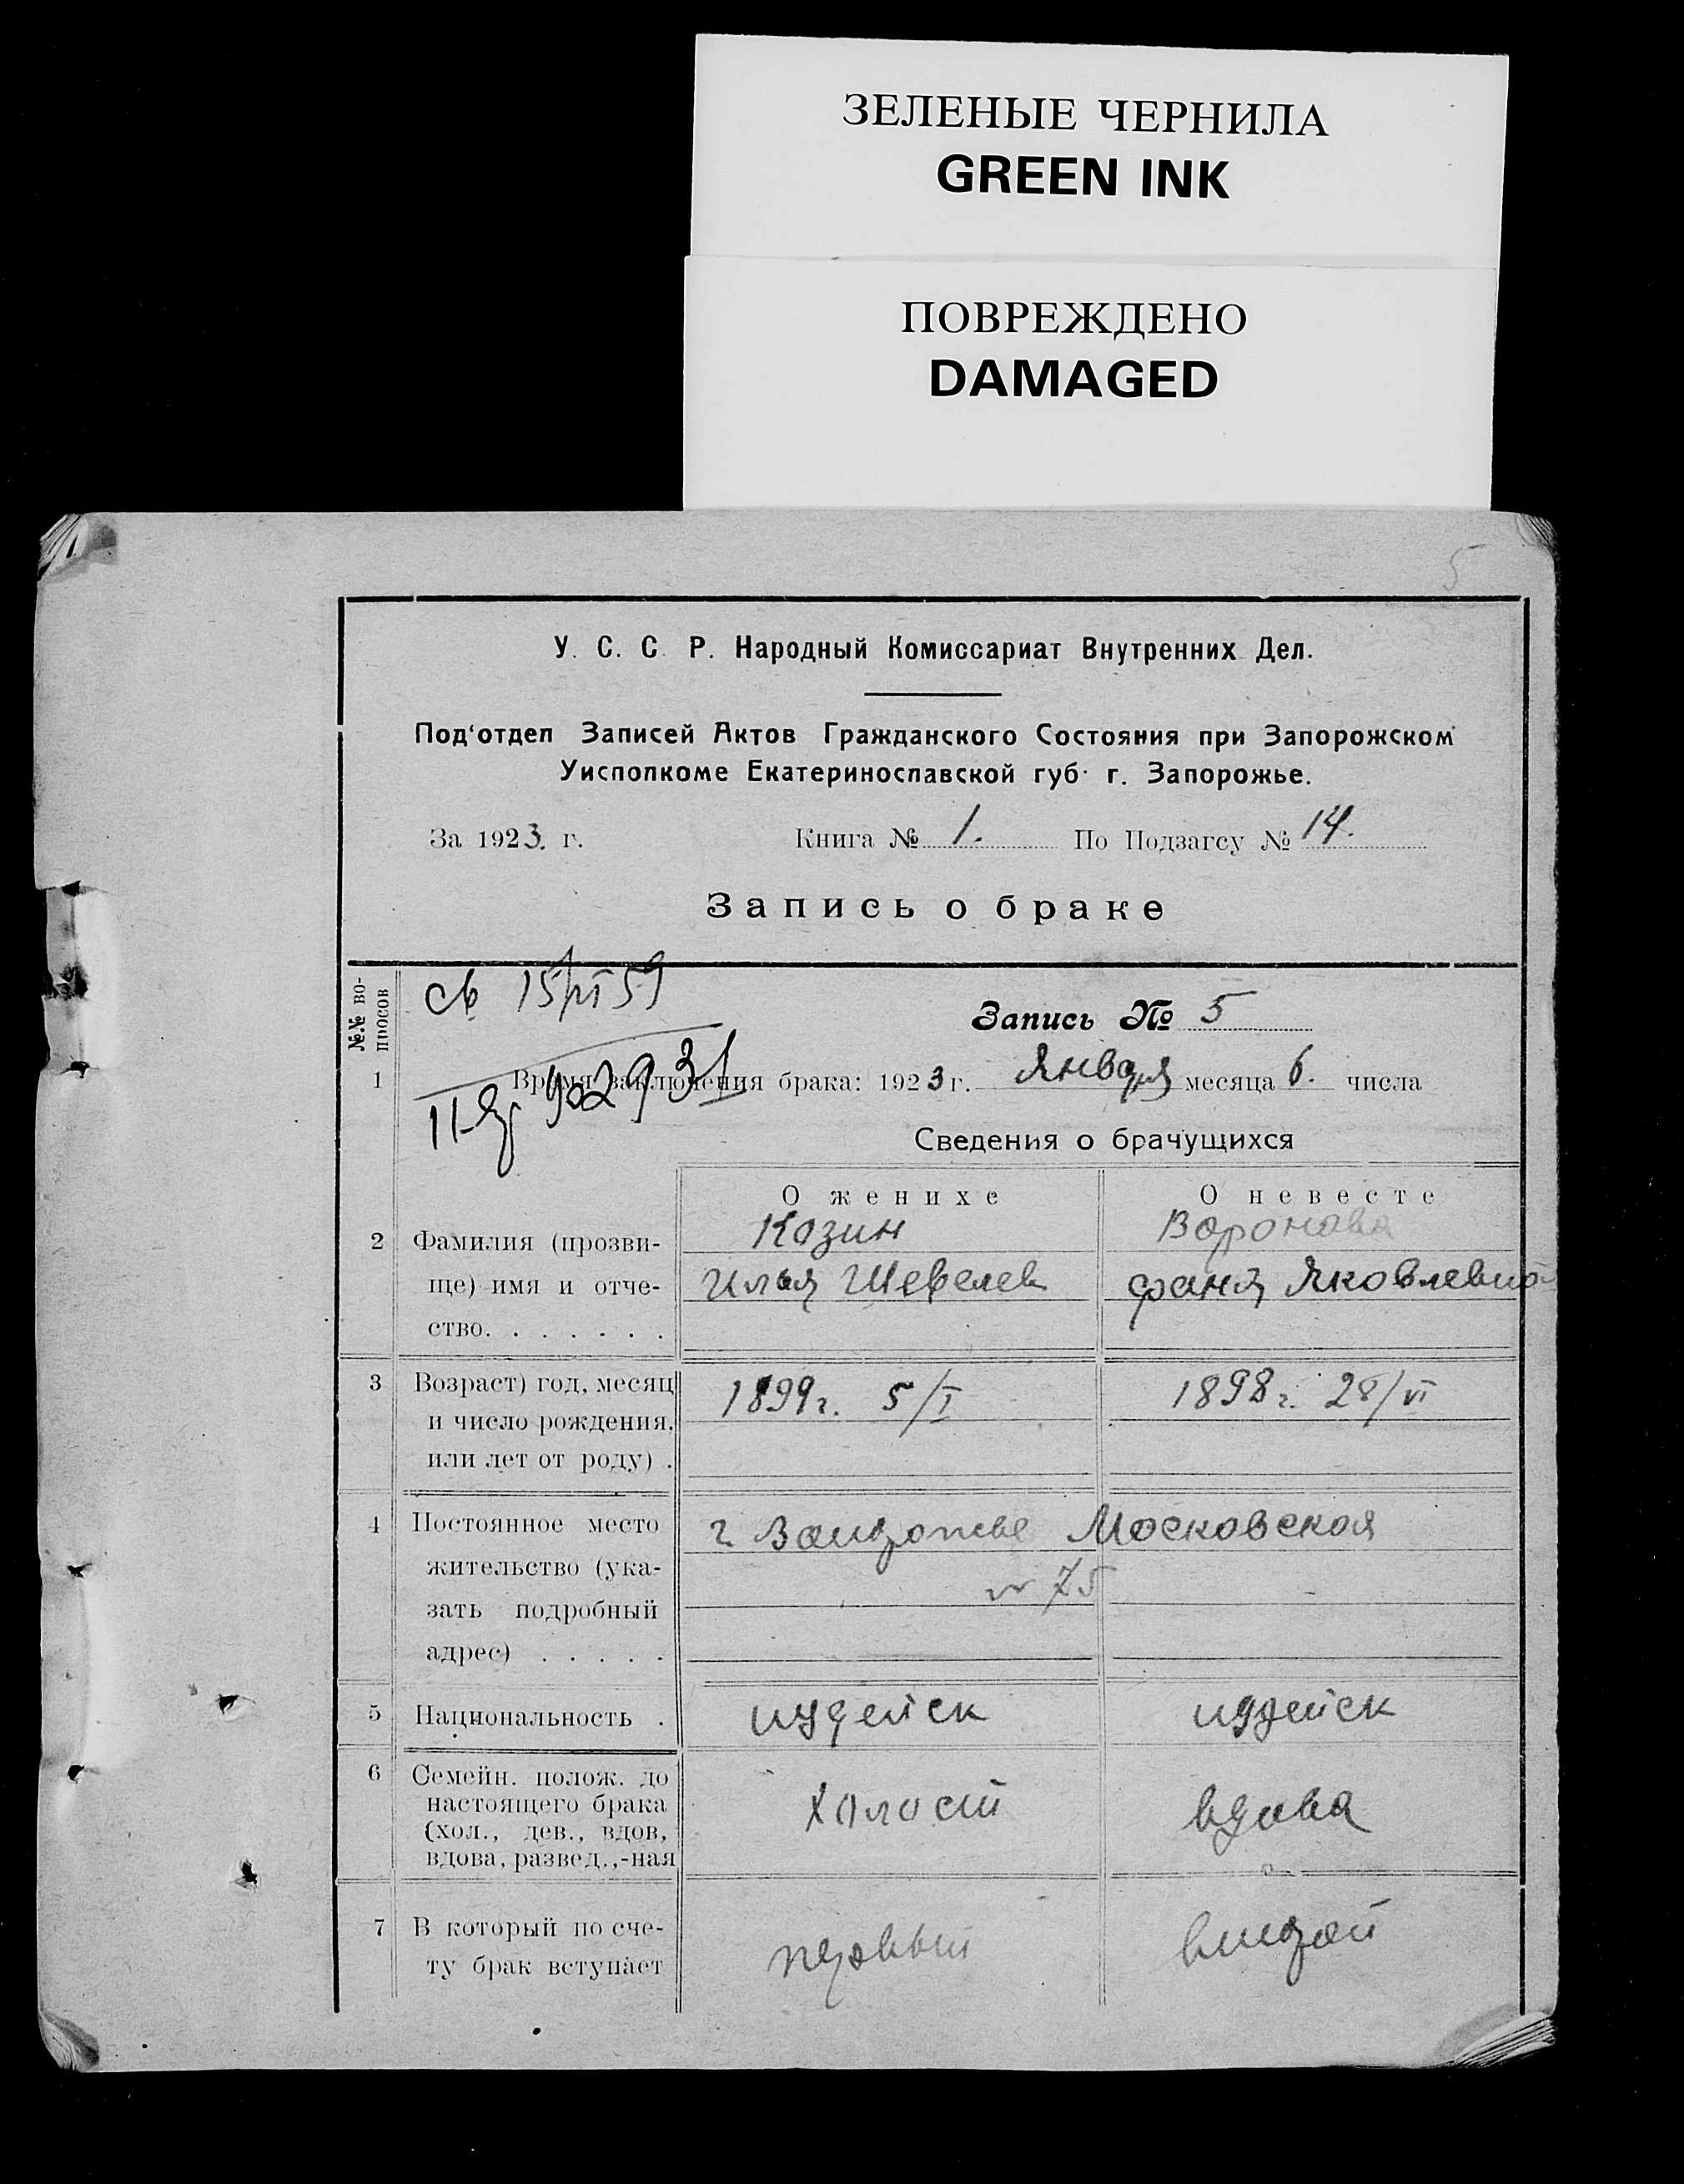 ЗЕЛЕНЫЕ ЧЕРНИЛА
GREEN INK
ПОВРЕЖДЕНО
DAMAGED
5
У. С. С. Р. Народный Комиссариат Внутренних Дел.
Под'отдел Записей Актов Гражданского Состояния при Запорожском
Уисполкоме Екатеринославской губ. г. Запорожье.
За 1923. г. Книга № 1. По Подзагсу № 14.
Запись о браке
№№ во-
просов
св 15/VI 59
Запись № 5
1 Время заключения брака: 1923 г. Января месяца 6. числа
402931
Сведения о брачущихся
О женихе О невесте
2 Фамилия (прозви- Козин Воронова
ще) имя и отче- Илья Шевелев Фаня Яковлевна
ство. . . . . . .
3 Возраст) год, месяц 1899 г. 5/I 1898 г. 28/VI
и число рождения,
или лет от роду) .
4 Постоянное место г. Запорожье Московская
жительство (ука- № 75
зать подробный
адрес) . . . . .
5 Национальность . иудейск иудейск
6 Семейн. полож. до
настоящего брака холост вдова
(хол., дев., вдов,
вдова, развед.,-ная
7 В который по сче- первый второй
ту брак вступает